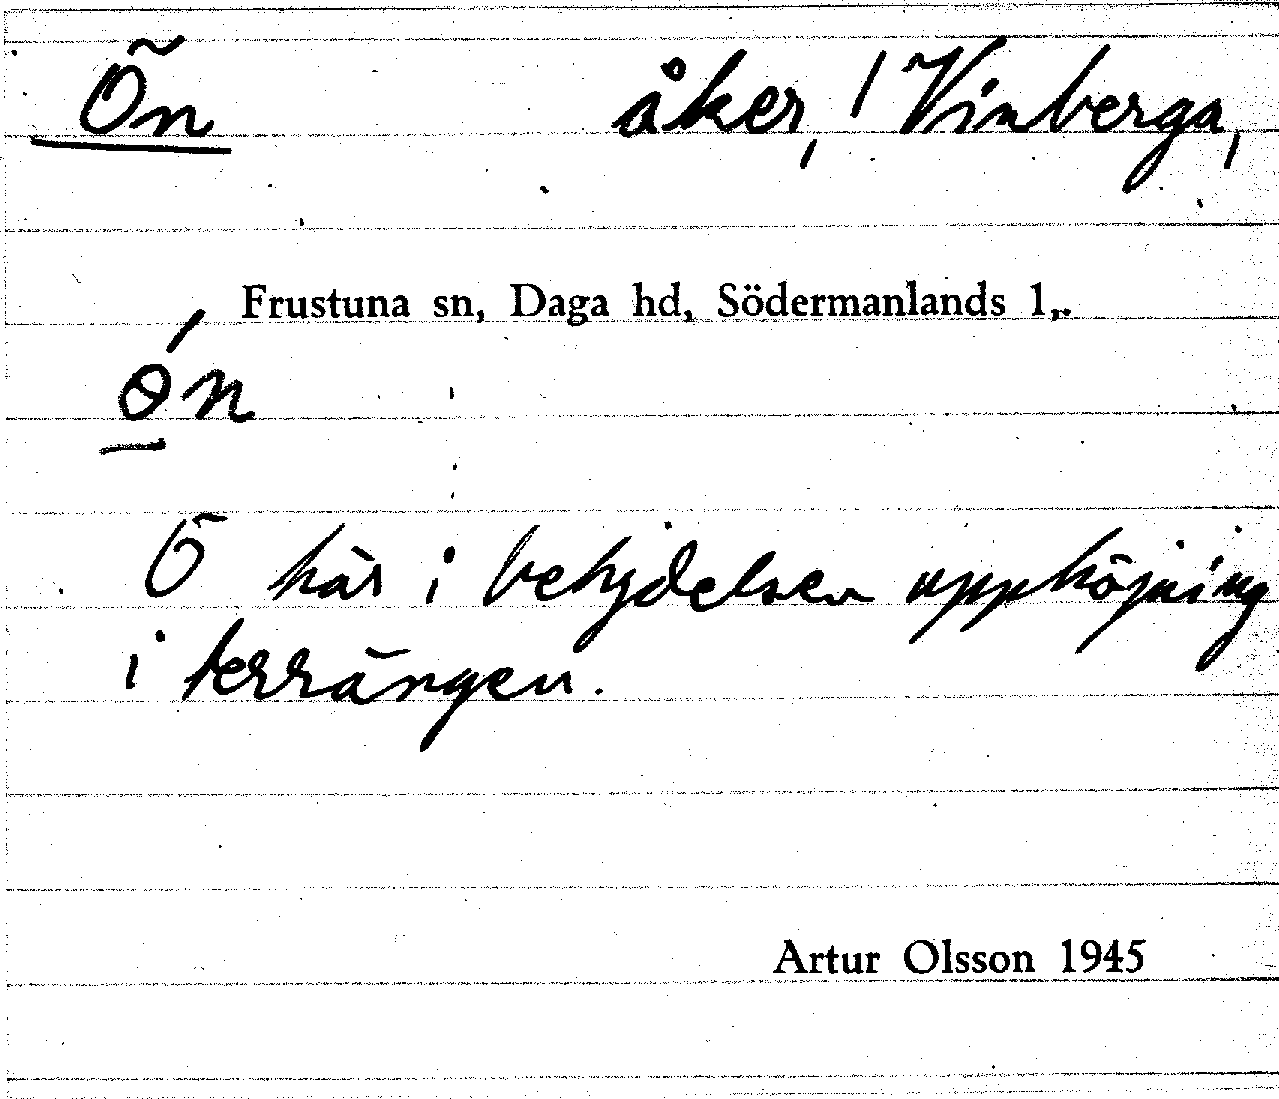 Ön åker, / Vinberga,
Frustuna sn, Daga hd, Södermanlands l,.
ɵ́n
Ö här i betydelsen upphöjning
i terrängen.
Artur Olsson 1945